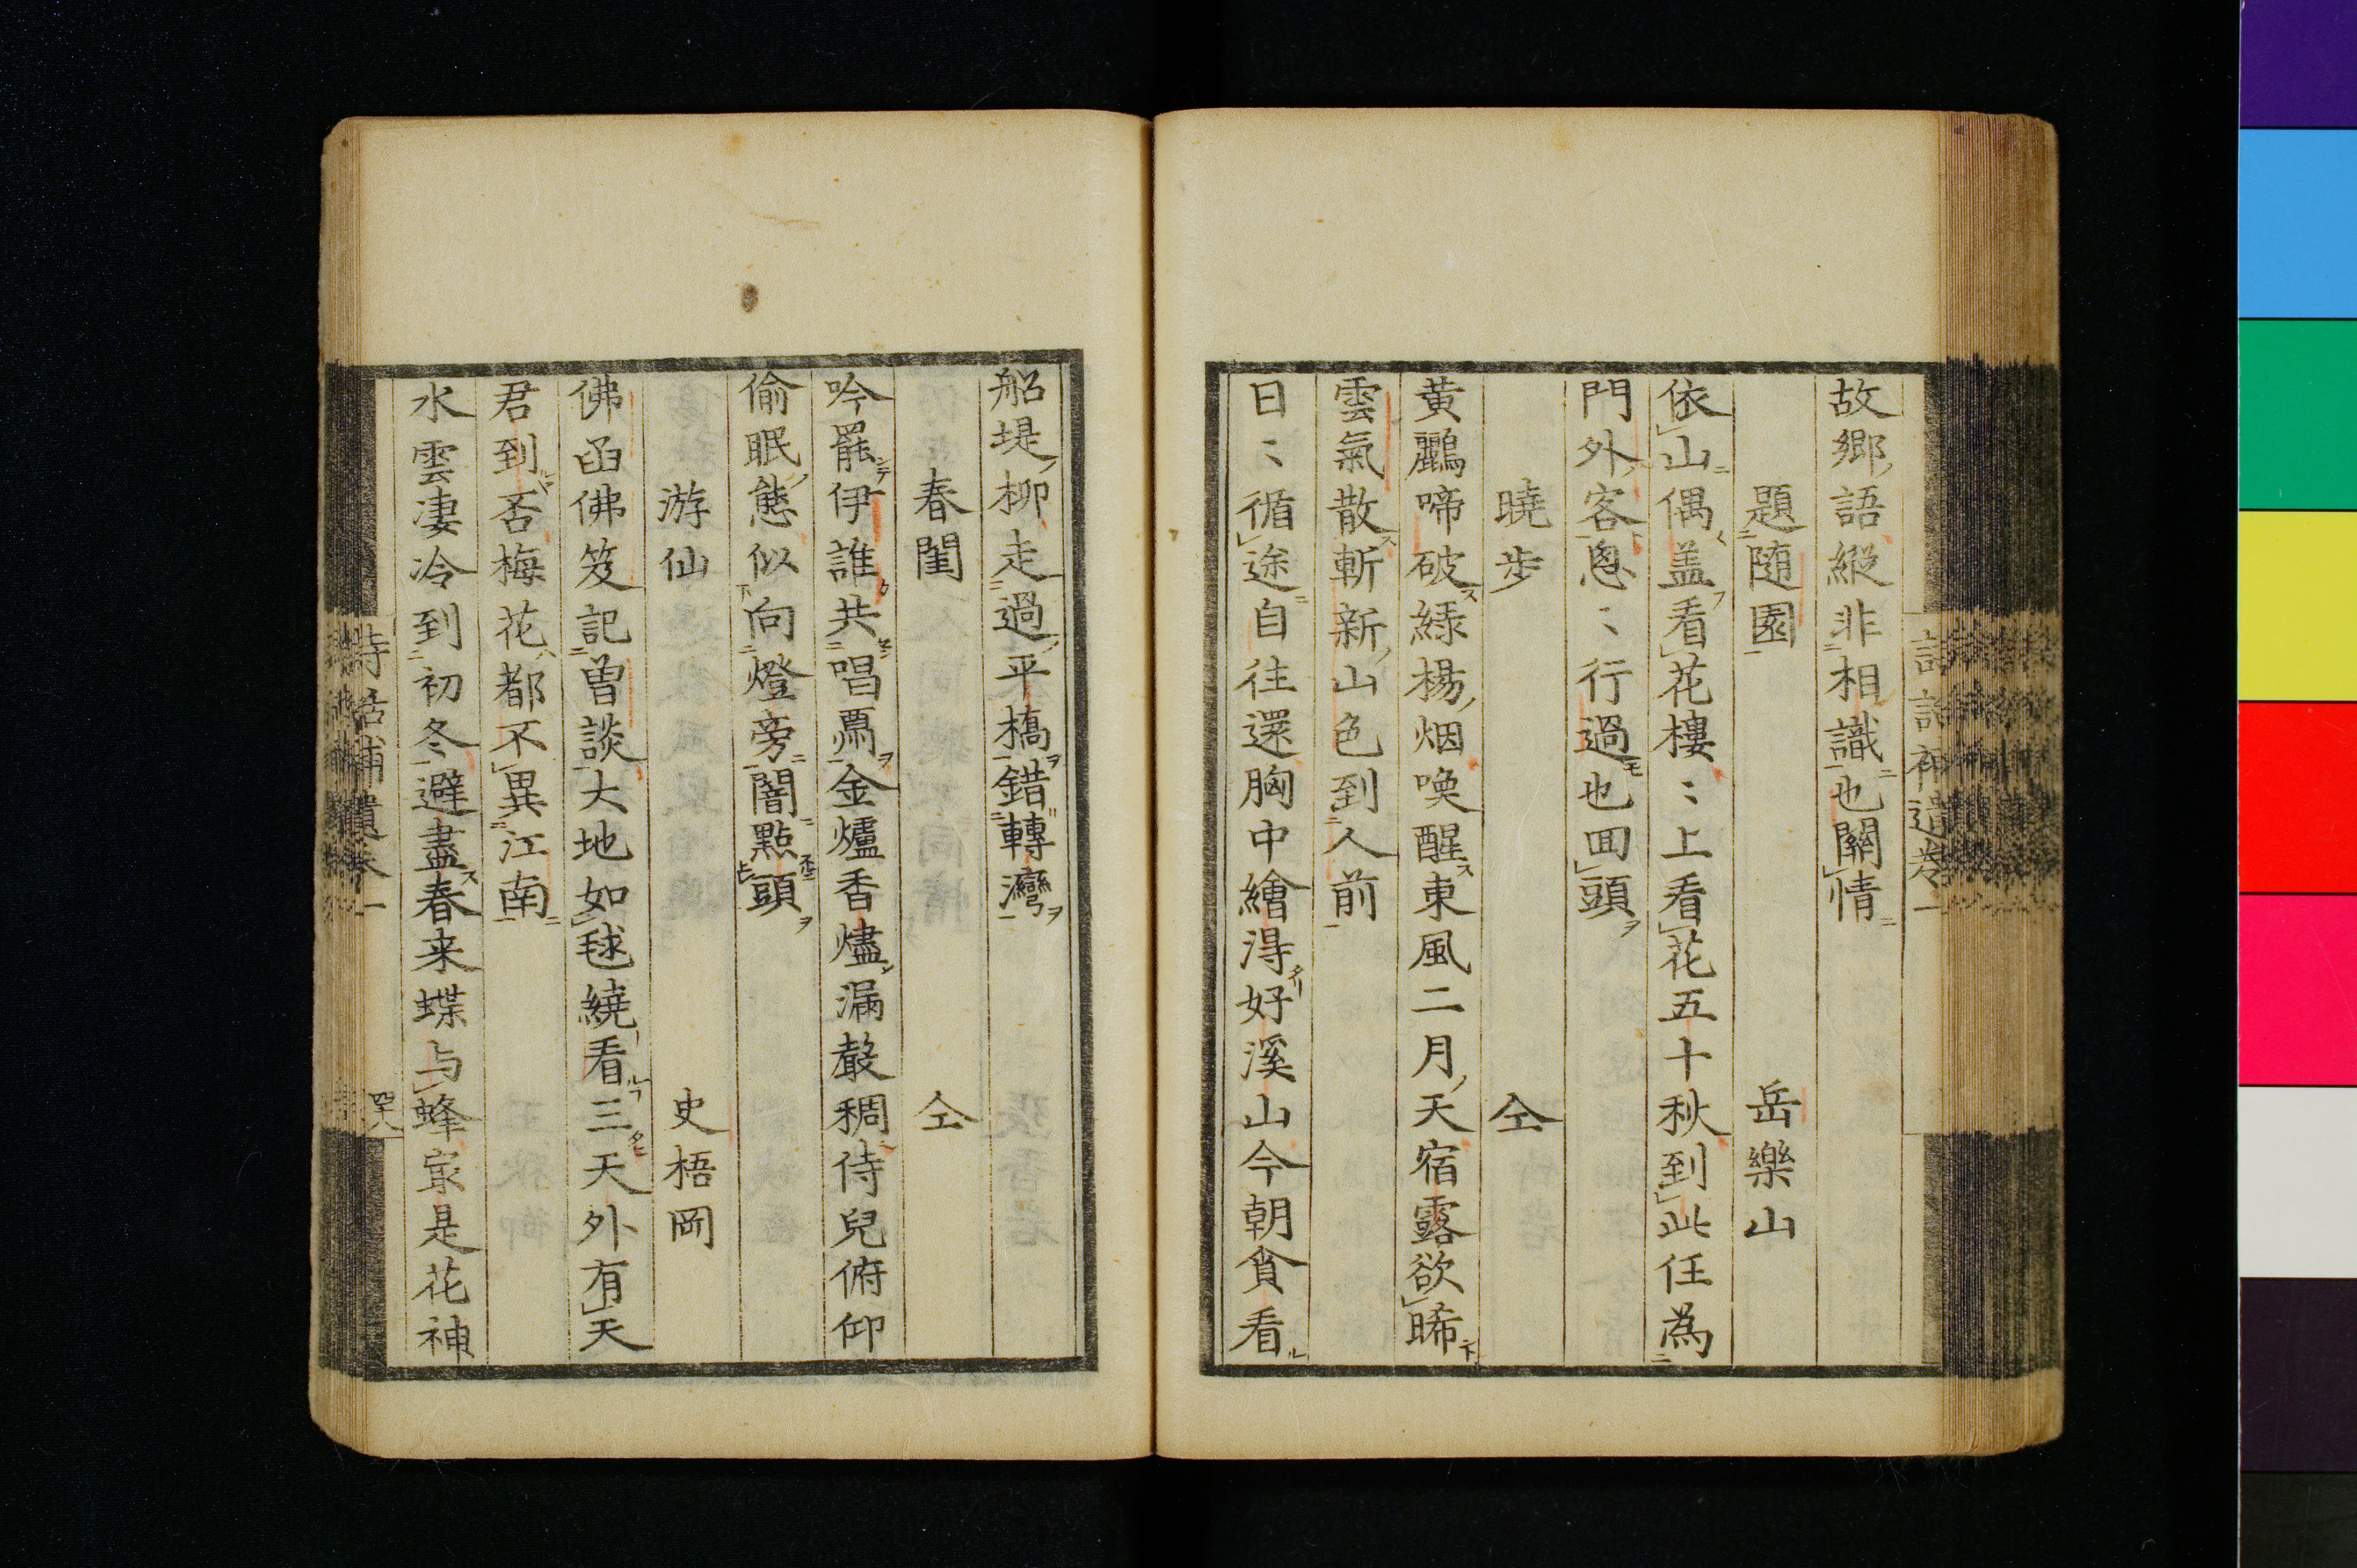 故鄉語縱非相識也關情
題隨園 岳樂山
依山偶盖看花樓〻上看花五十秋到此任為
門外客悤〻行過也回頭
曉步 仝
黄鸝啼破緑楊烟喚醒東風二月天宿露欲晞
雲氣散斬新山色到人前
日〻循途自往還胸中繪得好溪山今朝貪看
船堤柳走過平橋錯轉灣
春閨 仝
吟罷伊誰共唱焉金爐香燼漏聲稠侍兒俯仰
偷眠態似向燈旁闇點頭
游仙 史梧岡
佛函佛笈記曽談大地如毬繞看三天外有天
君到否梅花都不異江南
水雲凄冷到初冬避盡春来蝶与蜂寂是花神
詩話補遺卷一